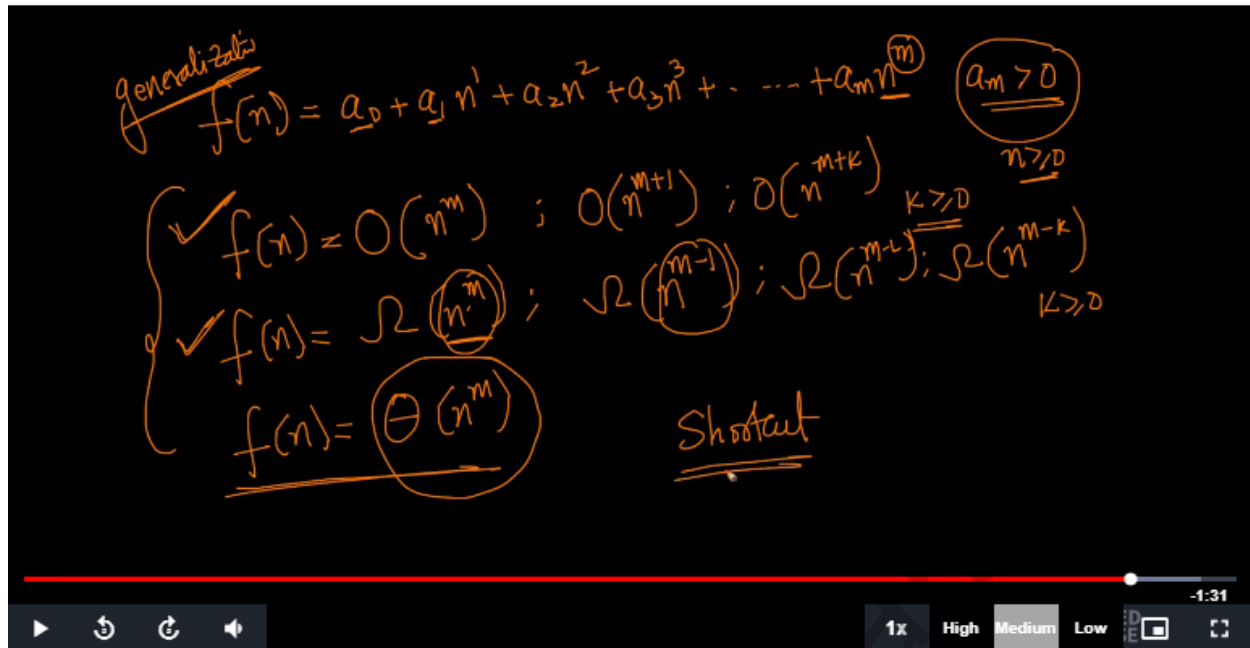 generalizatio
f(n) = a₀ + a₁n¹ + a₂n² + a₃n³ + . .... + aₘnᵐ aₘ > 0
n ≥ 0
f(n) = O(nᵐ) ; O(nᵐ⁺¹) ; O(nᵐ⁺ᴷ) K ≥ 0
f(n) = Ω(nᵐ) ; Ω(nᵐ⁻¹) ; Ω(nᵐ⁻ᴸ) ; Ω(nᵐ⁻ᴷ)
K ≥ 0
f(n) = Θ(nᵐ) Shortcut
-1:31
1x High Medium Low